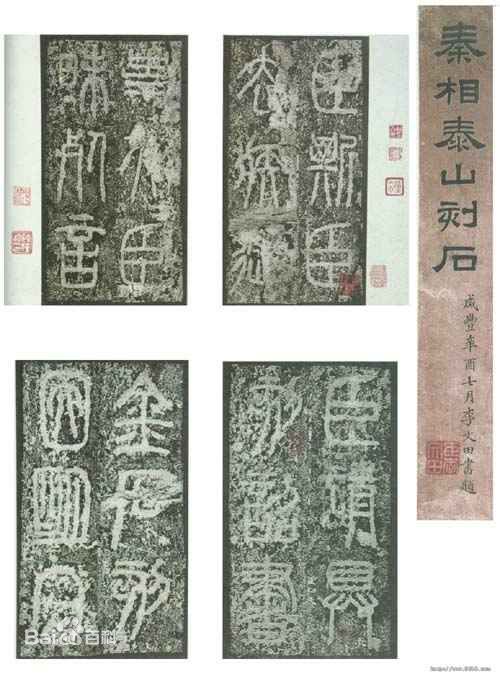 秦相泰山刻石
咸豐辛酉七月李文田書題
臣斯臣
去疾御
史夫臣
昧死言
臣請具
刻詔書
金石刻
因明白
Baidu百科